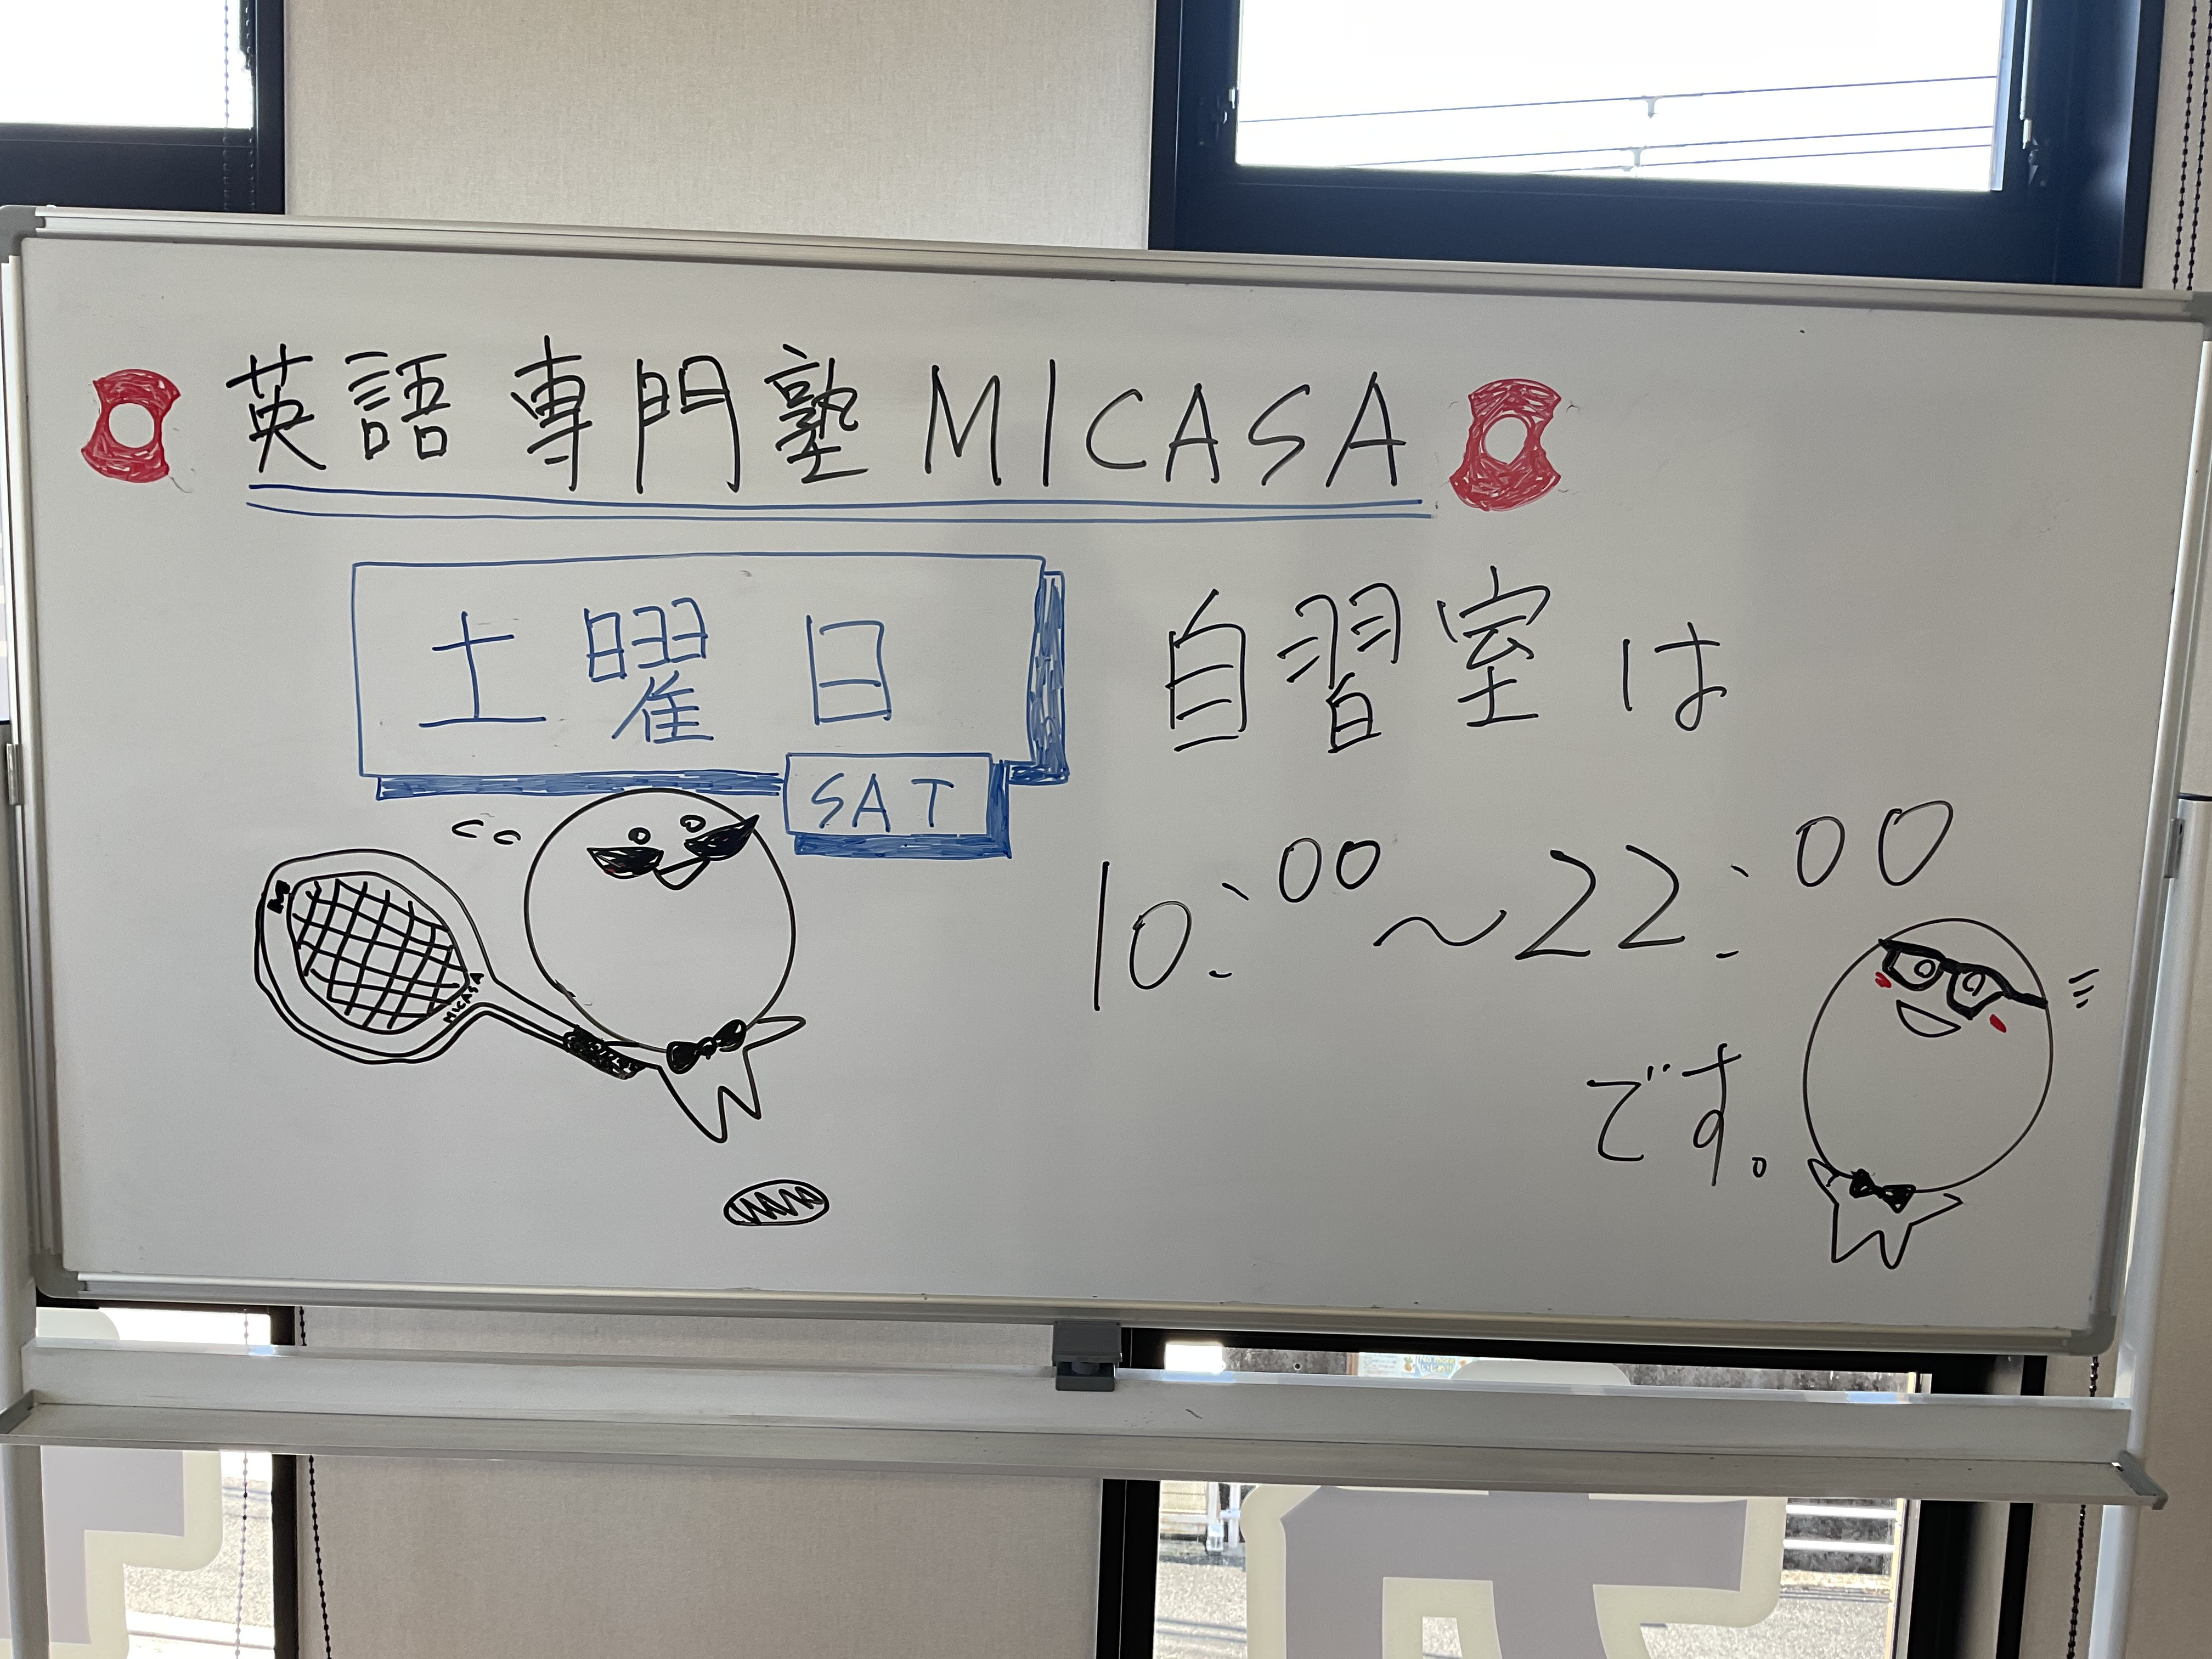 英語専門塾MICASA
土曜日
SAT
自習室は
10:00～22:00
です。
MICASA